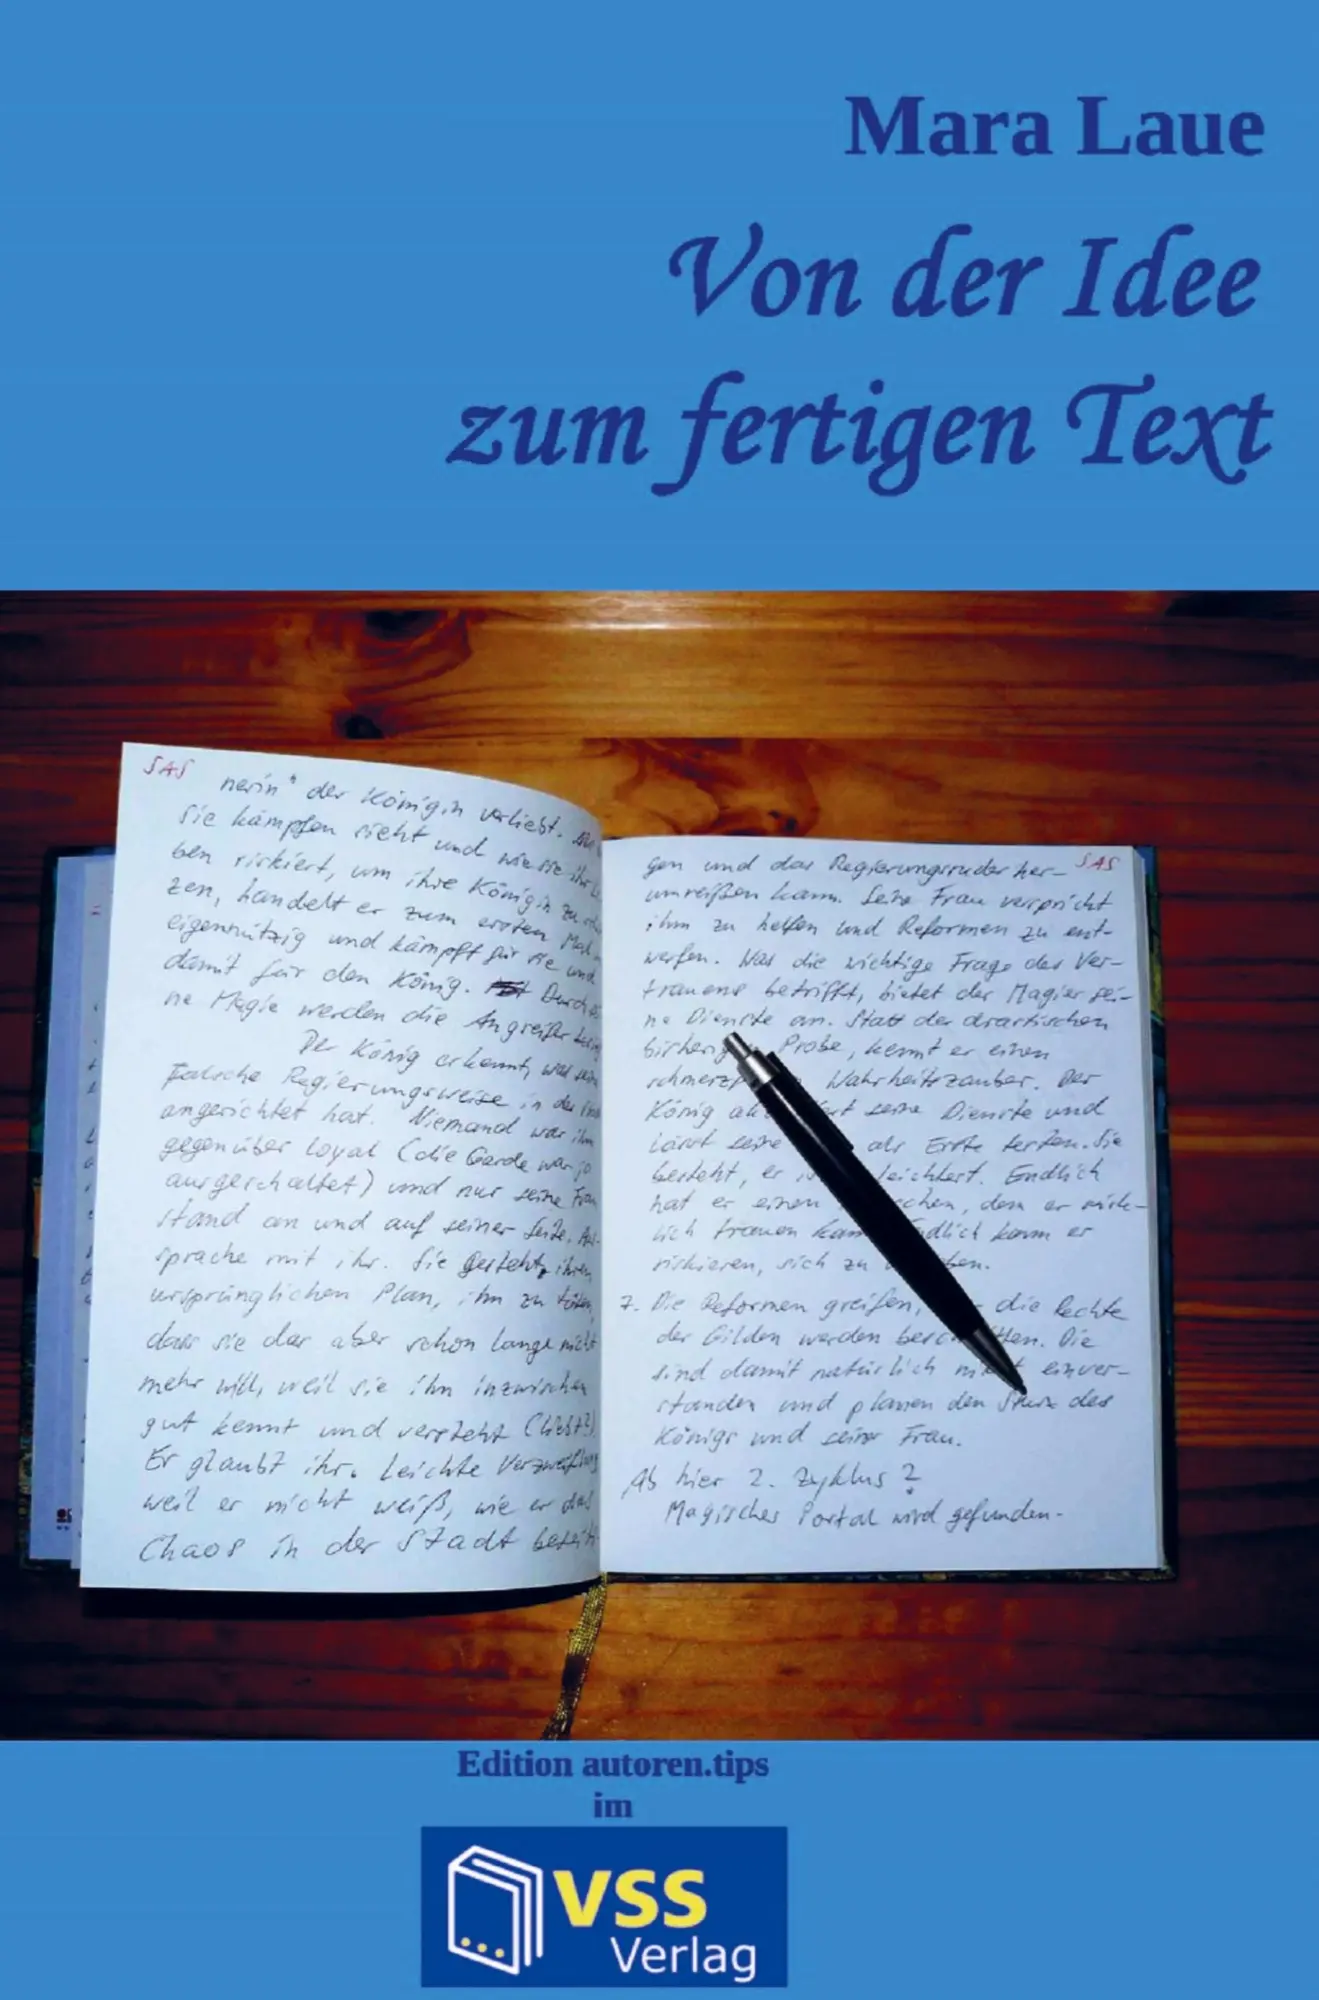 Mara Laue
Von der Idee
zum fertigen Text
SAS
nerin" der Königin verliebt.
sie kämpfen sieht und wie sie ihr
ben riskiert, um ihre Königin zu
zen, handelt er zum ersten Mal
eigennützig und kämpft für sie und
damit für den König. Durch
ne Magie werden die Angreifer
Der König erkennt, was seine
falsche Regierungsweise in der
angerichtet hat. Niemand war ihm
gegenüber loyal (die Garde war ja
ausgeschaltet) und nur seine Frau
stand an und auf seiner Seite. Aus-
sprache mit ihr. Sie gesteht ihren
ursprünglichen Plan, ihn zu töten,
dass sie das aber schon lange nicht
mehr will, weil sie ihn inzwischen
gut kennt und versteht (liebt?).
Er glaubt ihr. Leichte Verzweiflung
weil er nicht weiß, wie er das
Chaos in der Stadt
SAS
gen und das Regierungsruder her-
umreißen kann. Seine Frau verspricht
ihm zu helfen und Reformen zu ent-
werfen. Was die wichtige Frage des Ver-
trauens betrifft, bietet der Magier sei-
ne Dienste an. Statt der drastischen
Probe, kennt er einen
Wahrheitszauber. Der
König seine Dienste und
lässt seine als Erste testen. Sie
besteht, er Endlich
hat er einen dem er wirk-
lich trauen kann er
riskieren, sich zu
7. Die Reformen greifen, die Rechte
der Gilden werden beschnitten. Die
sind damit natürlich nicht einver-
standen und planen den Sturz des
Königs und seiner Frau.
Ab hier 2. Zyklus?
Magisches Portal wird gefunden.
Edition autoren.tips
im
VSS
Verlag